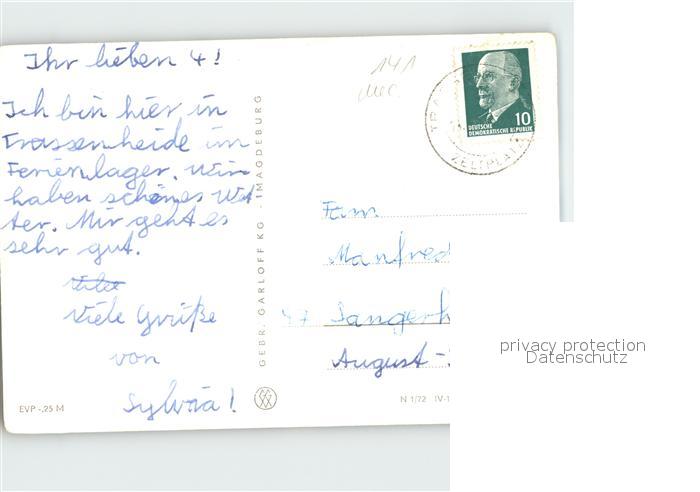 Ihr lieben 4!
Ich bin hier in
Trassenheide im
Ferienlager. Wir
haben schönes Wet
ter. Mir geht es
sehr gut.
Viele Grüße
von
Sylvia!
EVP -,25 M
GEBR. GARLOFF KG · MAGDEBURG
141
10
DEUTSCHE
DEMOKRATISCHE REPUBLIK
TRA
ZELTPLATZ
Fam.
Manfred
47 Sangerh
August-
N 1/72 IV-1
privacy protection
Datenschutz